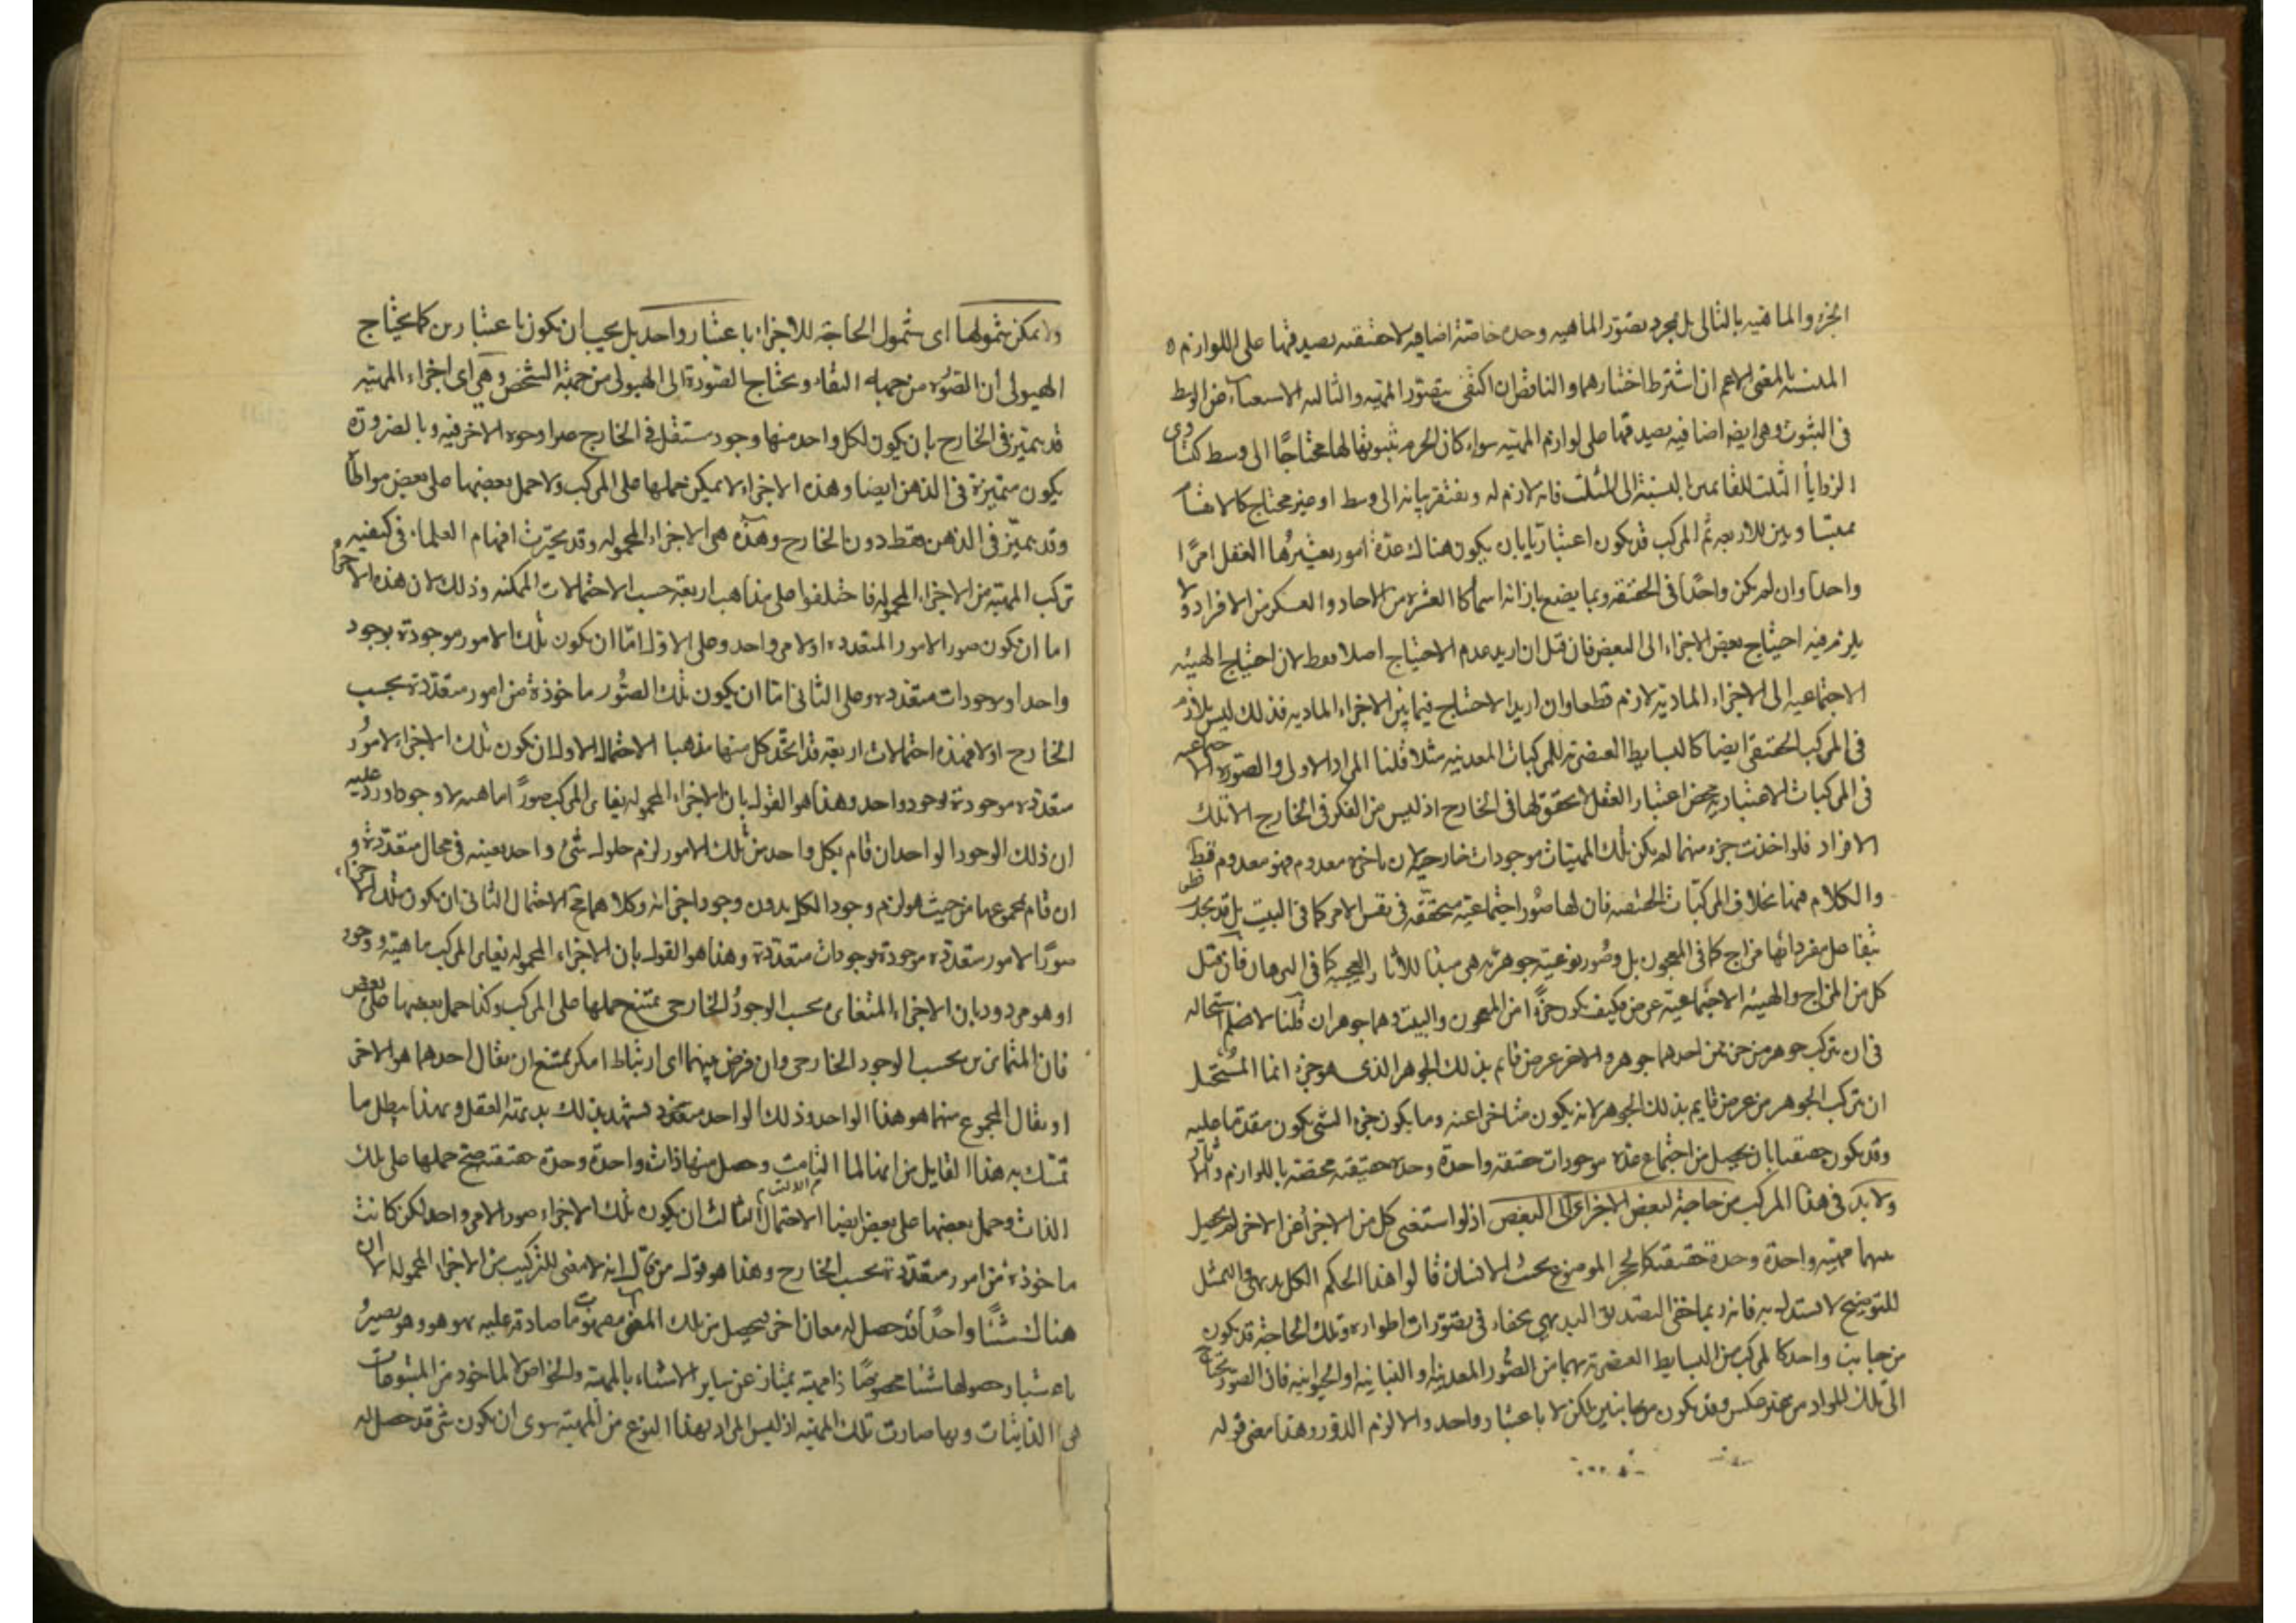 الجزء والماهية بالثانى بل مجرد تصور الماهيه وحده خاصة اضافيه لاحقيقيه يصدقها على اللوازم
البينة بالمعنى الاعم ان اشترط اخطارهما والناقص ان اكتفى بتصور المهيه والثالثه الاستغناء عن الوسط
فى الثبوت وهى ايضه اضافيه يصدقها على لوازم المهيه سواء كان الجزم بثبوتها لها محتاجًا الى وسط كتساوى
الزوايا الثلث للقايمتين بالنسبة الى المثلث فانه لازم له ويفتقر بيانه الى وسط او غير محتاج كالانقسام
بمتساويين للاربعه ثم المركب قد يكون اعتباريا بان يكون هناك عدة امور يعتبرها العقل امرًا
واحدا وان لم يكن واحدًا فى الحقيقه وربما يضع بازائه اسما كالعشره من الاحاد والعسكر من الافراد ولا
يلزم فيه احتياج بعض الاجزاء الى البعض فان قيل ان اريد عدم الاحتياج اصلا فغلط لان احتياج الهيئه
الاجتماعيه الى الاجزاء الماديه لازم قطعا وان اريد الاحتياج فيما بين الاجزاء الماديه فذلك ليس بلازم
فى المركب الحقيقى ايضا كالبسايط العنصريه للمركبات المعدنيه مثلا قلنا المراد الاول والصوره الاجتماعيه
فى المركبات الاعتباريه محض اعتبار العقل لا تحقق لها فى الخارج اذ ليس من العسكر فى الخارج الا تلك
الافراد فلو اخذت جزء منها لم يكن تلك المهيات موجودات خارجيه لان ما جزءه معدوم فهو معدوم قطعا
والكلام فيها بخلاف المركبات الحقيقيه فان لها صور اجتماعيه متحققه فى نفس الامر كما فى البيت بل قد يحدث
بتفاعل مفرداتها مزاج كما فى المعجون بل وصور نوعية جوهريه هى مبدأ للآثار العجيبه كما فى فان قيل
كل من المزاج والهيئه الاجتماعيه عرض فكيف يكون جزءًا من المعجون والبيت وهما جوهران قلنا لا نعلم استحاله
فى ان يتركب جوهر من جزئين احدهما جوهر والاخر عرض قايم بذلك الجوهر الذى هو جزء انما المستحيل
ان يتركب الجوهر من عرض قايم بذلك الجوهر لانه يكون متاخرا عنه وما يكون جزء الشى يكون متقدما عليه
وقد يكون حقيقيا بان يحصل من اجتماع عدة موجودات حقيقه واحدة وحده حقيقيه مختصه باللوازم والاثار
ولا بد فى هذا المركب من حاجة لبعض الاجزاء الى البعض اذ لو استغنى كل من الاجزاء عن الاخر لم يحصل
منها مهيه واحدة وحدة حقيقيه كالحجر الموضوع بجنب الانسان قالوا هذا الحكم الكلى بديهى والتمثيل
للتوضيح لا يستدل به فانه ربما خفى التصديق البديهى بخفاء فى تصورات اطرافه وتلك الحاجة قد يكون
من جانب واحد كالمركب من البسايط العنصريه ومما من الصور المعدنيه او النباتيه او الحيوانيه فان الصور تحتاج
الى تلك المواد من غير عكس وقد يكون من جانبين لكن لا باعتبار واحد والا لزم الدور وهذا معنى قوله
ولا يمكن شمولها اى شمول الحاجة للاجزاء باعتبار واحد بل يجب ان يكون باعتبارين كما يحتاج
الهيولى الى الصوره من جهة البقاء ويحتاج الصورة الى الهيولى من جهة التشخص وهى اى اجزاء المهيه
قد يتميز فى الخارج بان يكون لكل واحد منها وجود مستقل فى الخارج غير وجود الاخر فيه وبالضرورة
يكون متميزة فى الذهن ايضا وهذه الاجزاء لا يمكن حملها على المركب ولا حمل بعضها على بعض مواطأة
وقد يتميز فى الذهن فقط دون الخارج وهذه هى الاجزاء المحموله وقد تحيرت افهام العلماء فى كيفيه
تركب المهيه من الاجزاء المحموله فاختلفوا على مذاهب اربعة حسب الاحتمالات الممكنه وذلك لان هذه الاجزاء
اما ان يكون صور الامور المتعدده او لامر واحد وعلى الاول اما ان يكون تلك الامور موجودة بوجود
واحد او بوجودات متعدده وعلى الثانى اما ان يكون تلك الصور ماخوذة من امور متعددة بحسب
الخارج او لا فهذه احتمالات اربعة قد اتخذ كل منها مذهبا الاحتمال الاول ان يكون تلك الاجزاء لامور
متعدده موجودة بوجود واحد وهذا هو القول بان الاجزاء المحموله يغاير المركب صورًا ماهيه لا وجودا ورد عليه
ان ذلك الوجود الواحد ان قام بكل واحد من تلك الامور لزم حلول شئ واحد بعينه فى محال متعددة و
ان قام بمجموعها من حيث هو لزم وجود الكل بدون وجود اجزائه وكلاهما مح الاحتمال الثانى ان يكون تلك الاجزاء
صورًا لامور متعدده موجودة بوجودات متعددة وهذا هو القول بان الاجزاء المحموله يغاير المركب ماهيه ووجود
او هو مردود بان الاجزاء المتغايره بحسب الوجود الخارجى يمتنع حملها على المركب وكذا حمل بعضها على بعض
فان المتمايزين بحسب الوجود الخارجى وان فرض بينهما اى ارتباط امكن يمتنع ان يقال احدهما هو الاخر
او يقال المجموع منهما هو هذا الواحد وذلك الواحد يشهد بذلك بديهة العقل وبهذا يبطل ما
تمسك به هذا القايل من انها لما التامت وحصل منها ذات واحدة وحدة حقيقيه صح حملها على تلك
الذات وحمل بعضها على بعض ايضا الاحتمال الثالث ان يكون تلك الاجزاء صور الامر واحد لكن كانت
ماخوذة من امور متعددة بحسب الخارج وهذا هو قول من قال انه لا معنى للتركيب من الاجزاء المحموله الا ان
هناك شئًا واحدًا قد حصل له معان اخر يحصل من تلك المعنى مفهومات صادقه عليه هو هو وهو يصير
باعتبار حصولها شئا مخصوصًا ذا مهيه يمتاز عن ساير الاشياء بالمهيه والخواص لماخوذ من المتبوعات
هى الذاتيات وبها صارت تلك المهيه اذ ليس المراد بهذا النوع من المهيه سوى ان يكون شى قد حصل له